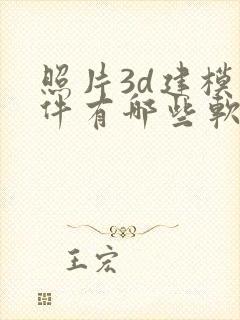 照片3d建模
件有哪些軟
王宏